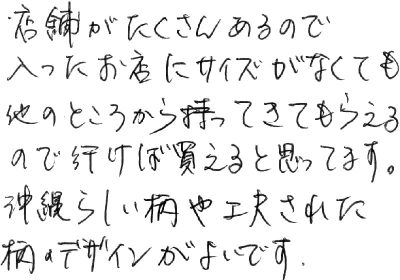 店舗がたくさんあるので
入ったお店にサイズがなくても
他のところから持ってきてもらえる
ので行けば買えると思ってます。
沖縄らしい柄や工夫された
柄のデザインがよいです.